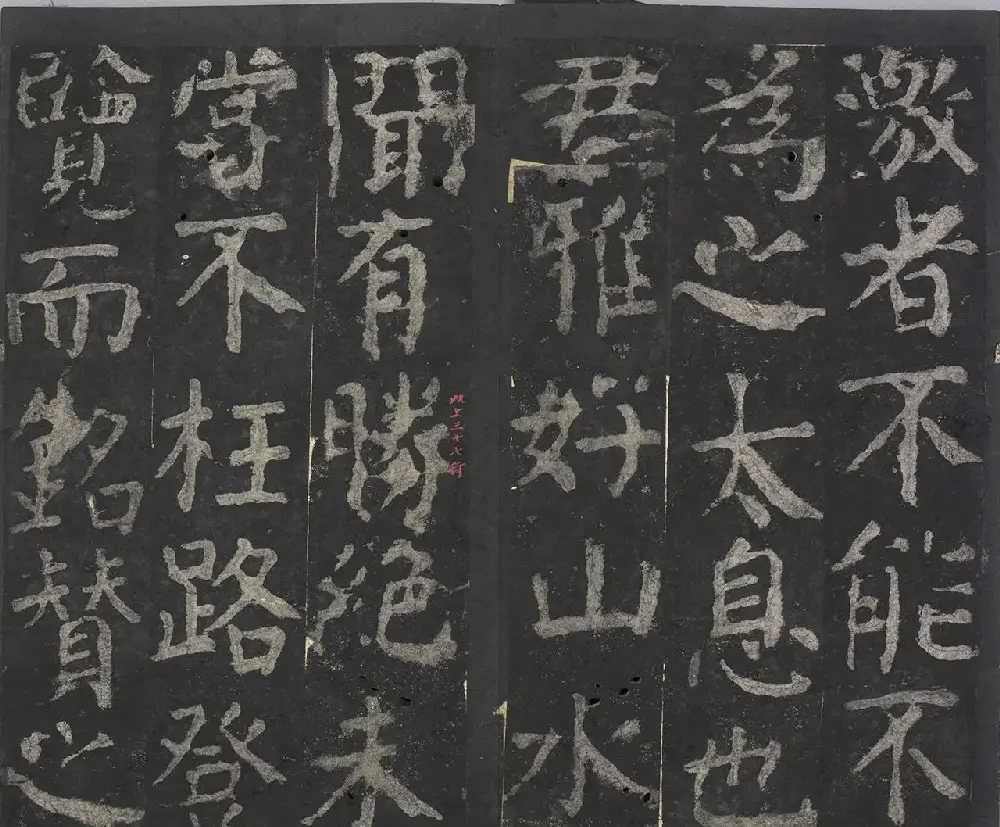 激者不能不
為之太息也
君雅好山水
聞有勝絕未
以上三十八行
嘗不枉路登
覽而銘贊之